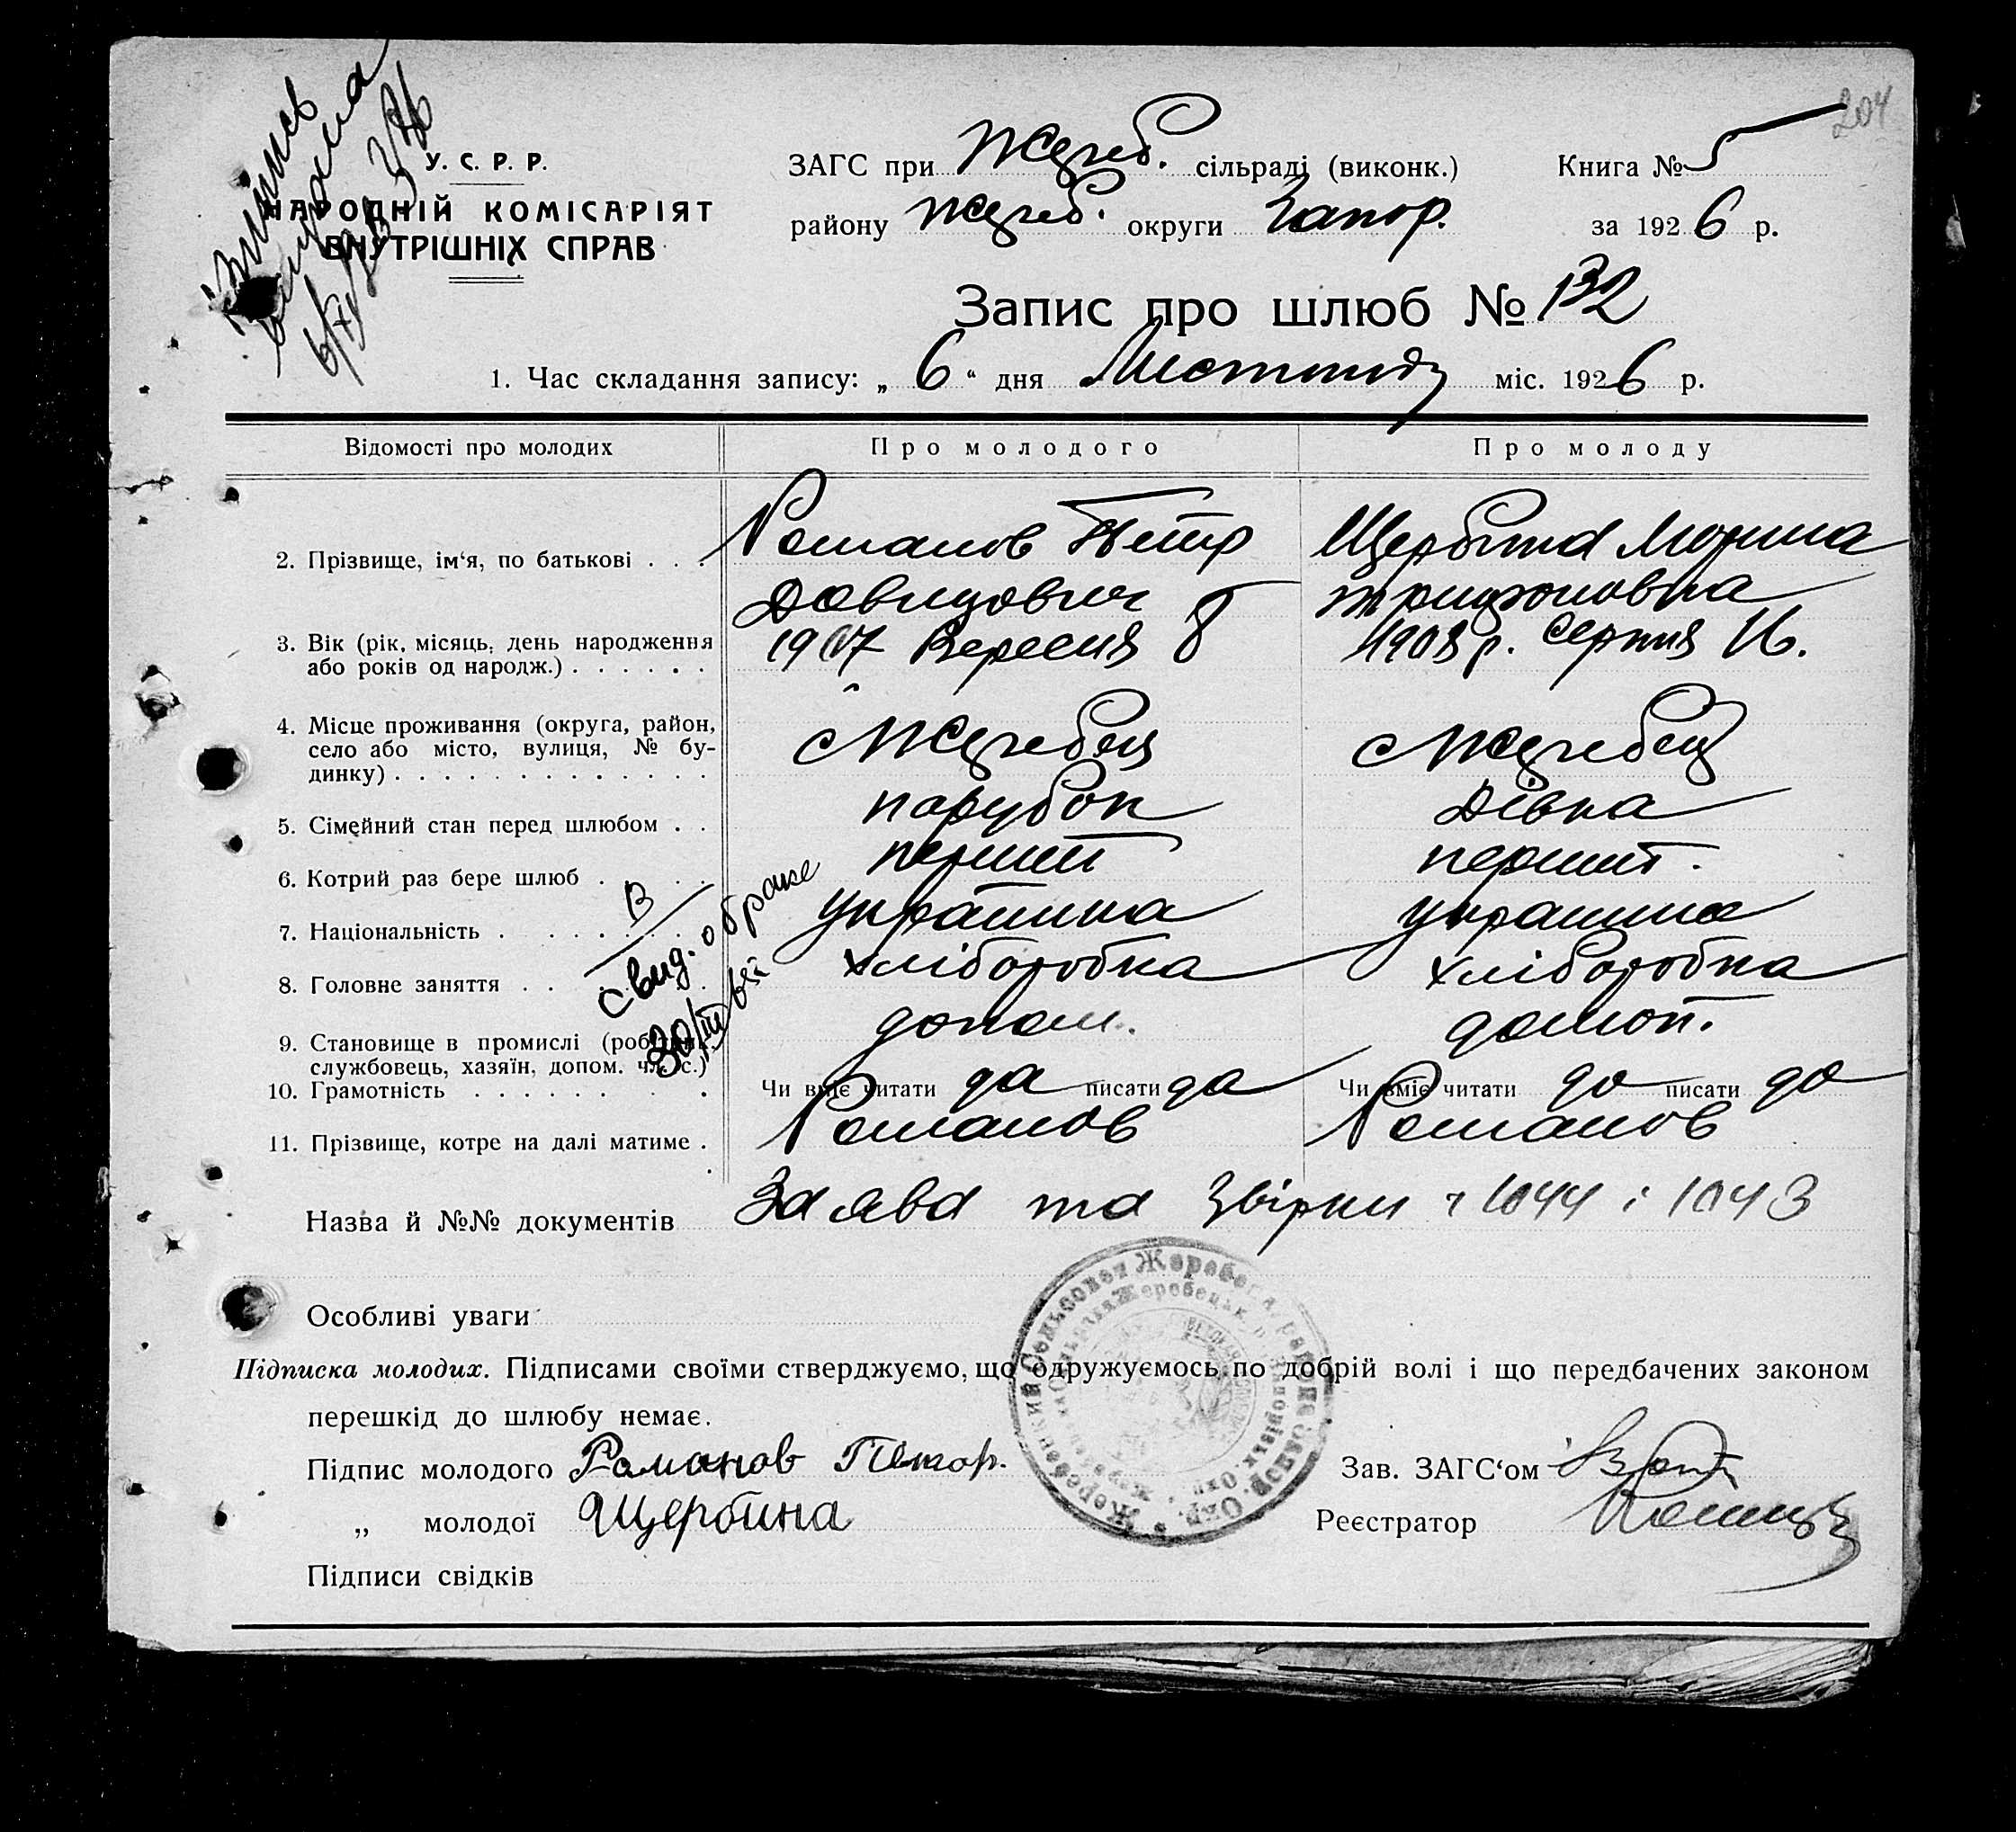 204
У. С. Р. Р.
НАРОДНІЙ КОМІСАРІЯТ
ВНУТРІШНІХ СПРАВ
Випись
видана
ЗАГС при Жереб. сільраді (виконк.) Книга № 5
району Жереб. округи Запор. за 1926 р.
Запис про шлюб № 132
1. Час складання запису: „ 6 “ дня Листопаду міс. 1926 р.
Відомості про молодих Про молодого Про молоду
2. Прізвище, ім‘я, по батькові . . . Романов Петр Щербина Марина
Давидович Трифоновна
3. Вік (рік, місяць, день народження 1907 Вересня 8 1908 р. Серпня 16.
або років од народж.) . . . . . .
4. Місце проживання (округа, район, с Жеребец с Жеребец
село або місто, вулиця, № бу-
динку) . . . . . . . . . . . . .
5. Сімейний стан перед шлюбом . . парубок дівка
6. Котрий раз бере шлюб . . . . перший перший.
7. Національність . . . . . . . українка українка
8. Головне заняття . . . хліборобка хліборобка
В
свид. о браке
30/III
9. Становище в промислі (робітник, допом. домоп.
службовець, хазяїн, допом. чл. с.)
10. Грамотність . . . . . . . . Чи вміє читати да писати да Чи вміє читати да писати да
11. Прізвище, котре на далі матиме . Романов Романов
Назва й №№ документів Заява та Звірки 1044 і 1043
Особливі уваги
Підписка молодих. Підписами своїми стверджуємо, що одружуємось по добрій волі і що передбачених законом
перешкід до шлюбу немає.
Підпис молодого Романов Петор. Зав. ЗАГС‘ом
„ молодої Щербина Реєстратор
Підписи свідків